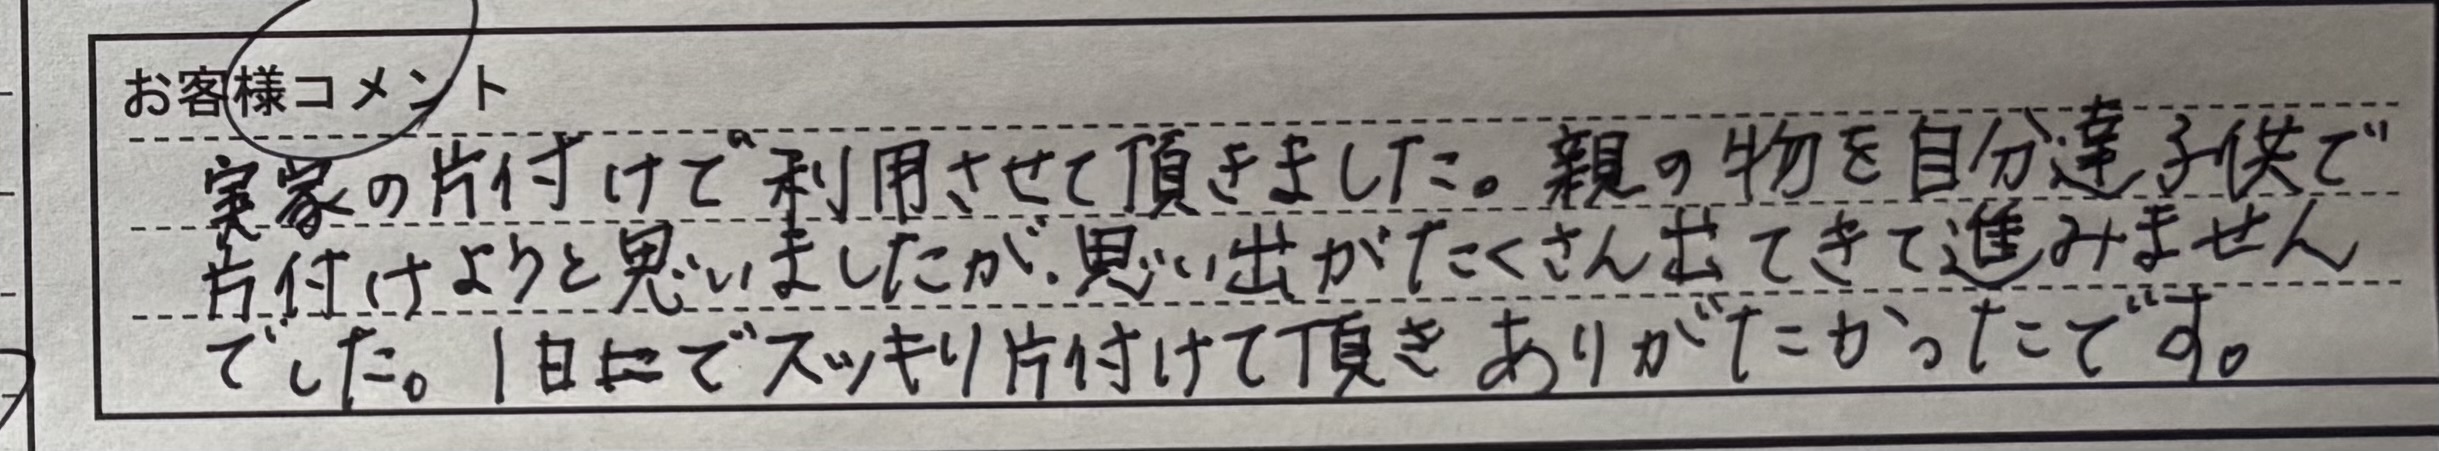 お客様コメント
実家の片付けで利用させて頂きました。親の物を自分達子供で
片付けようと思いましたが、思い出がたくさん出てきて進みません
でした。1日でスッキリ片付けて頂きありがたかったです。